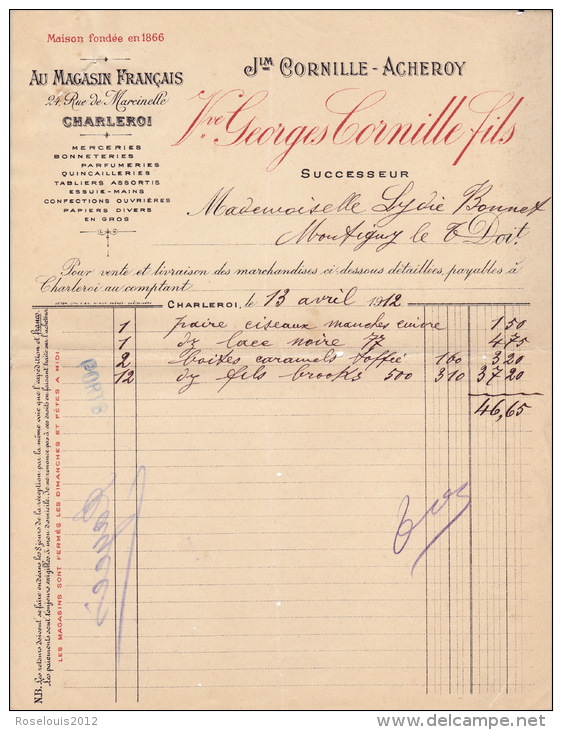 Maison fondée en 1866
AU MAGASIN FRANÇAIS
24, Rue de Marcinelle
CHARLEROI
MERCERIES
BONNETERIES
PARFUMERIES
QUINCAILLERIES
TABLIERS ASSORTIS
ESSUIE-MAINS
CONFECTIONS OUVRIÈRES
PAPIERS DIVERS
EN GROS
JLM CORNILLE-ACHEROY
Vve Georges Cornille fils
SUCCESSEUR
Mademoiselle Lydie Bonnet
Montigny le T Doit.
Pour vente et livraison des marchandises ci-dessous détaillées, payables à
Charleroi au comptant
CHARLEROI, le 13 avril 1912
1 paire ciseaux manches cuivre 1 50
1 dz lace noire 77 4 75
2 boites caramels toffié 160 3 20
12 dz fils brooks 500 310 37 20
46,65
N.B. Les retours doivent se faire endéans les 8 jours de la réception par la même voie que l'expédition et franco.
Les paiements sont toujours exigibles à mon domicile. Je ne renonce pas à ces droits en faisant traite sur l'acheteur.
LES MAGASINS SONT FERMÉS LES DIMANCHES ET FÊTES A MIDI
Roselouis2012
www.delcampe.net